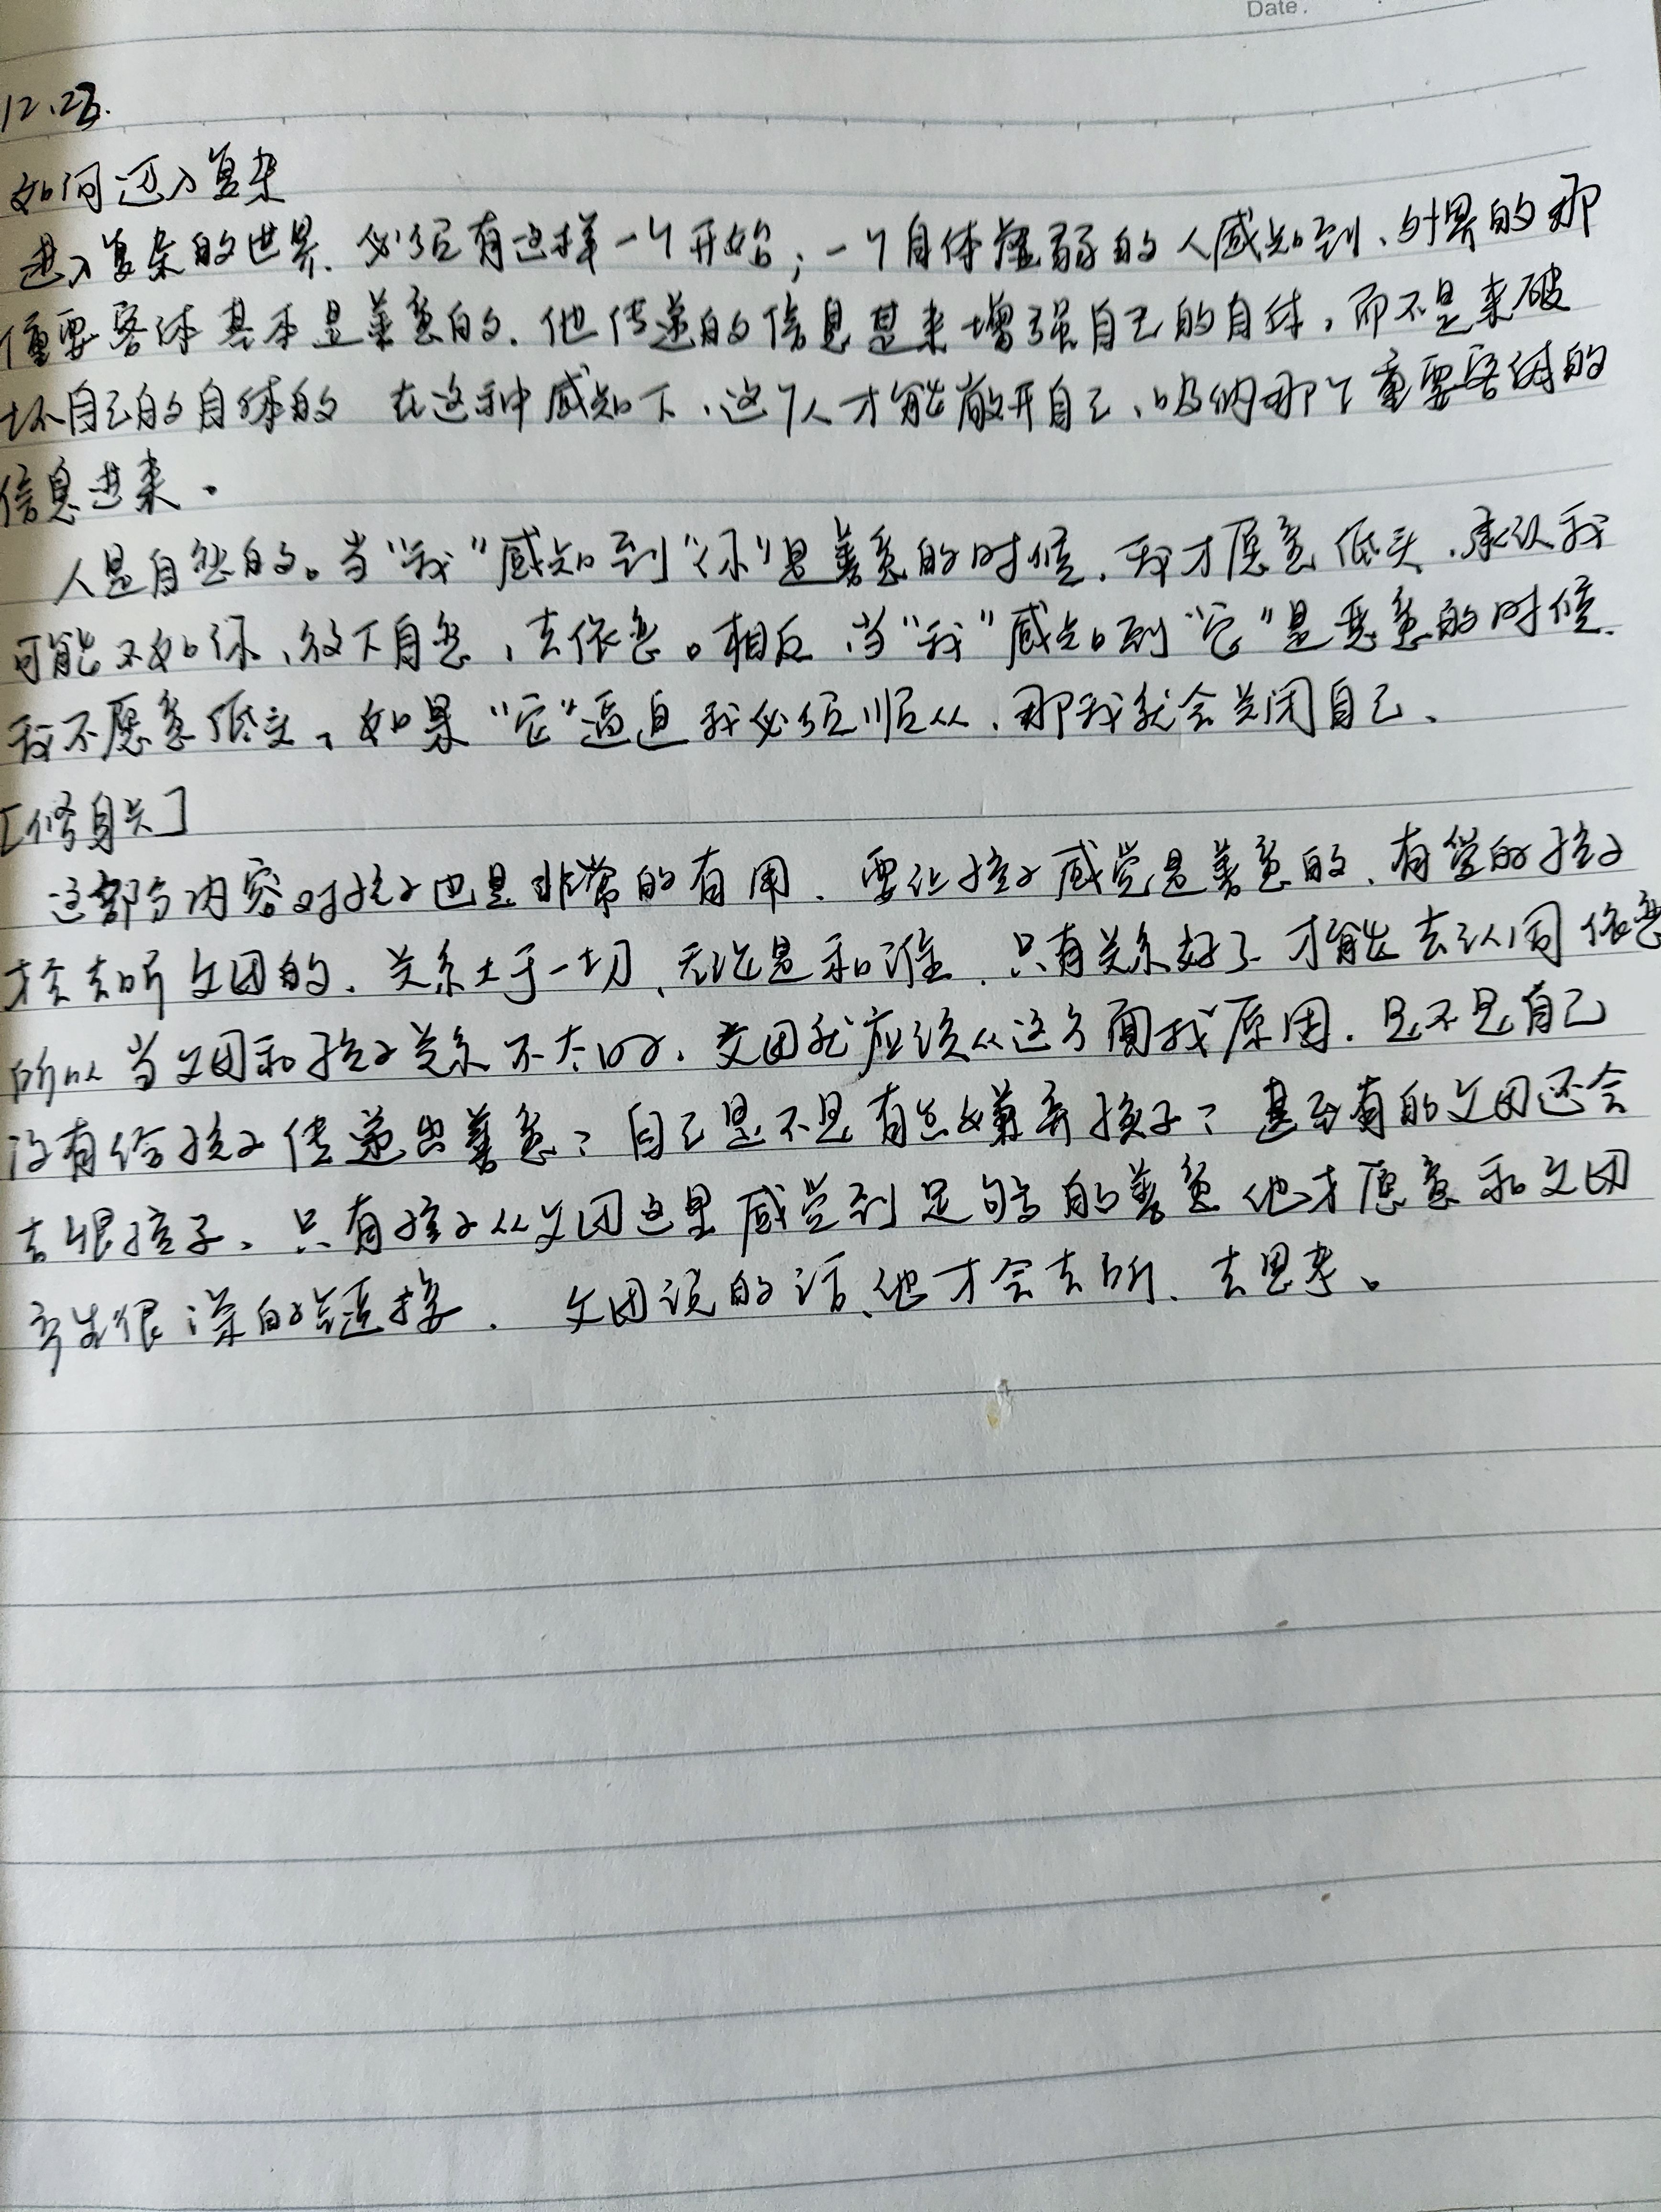 Date.
12.25.
如何迈入复杂
进入复杂的世界、必须有这样一个开始；一个自体虚弱的人感知到、外界的那
个重要客体基本是善意的、他传递的信息是来增强自己的自体，而不是来破
坏自己的自体的 在这种感知下、这个人才能敞开自己、吸纳那个重要客体的
信息进来。
人是自恋的。当“我”感知到“你”是善意的时候、我才愿意低头、承认我
可能不如你、放下自恋，去依恋。相反、当“我”感知到“它”是恶意的时候、
我不愿意低头，如果“它”逼迫我必须顺从、那我就会关闭自己、
这部分内容对孩子也是非常的有用、要让孩子感觉是善意的、有爱的孩子
才会去听父母的、关系大于一切、无论是和谁、只有关系好了才能去认同依恋
所以当父母和孩子关系不太好、父母就应该从这方面找原因、是不是自己
没有给孩子传递出善意？自己是不是有点嫌弃孩子？甚至有的父母还会
去恨孩子、只有孩子从父母这里感觉到足够的善意他才愿意和父母
产生很深的链接、 父母说的话、他才会去听、去思考。